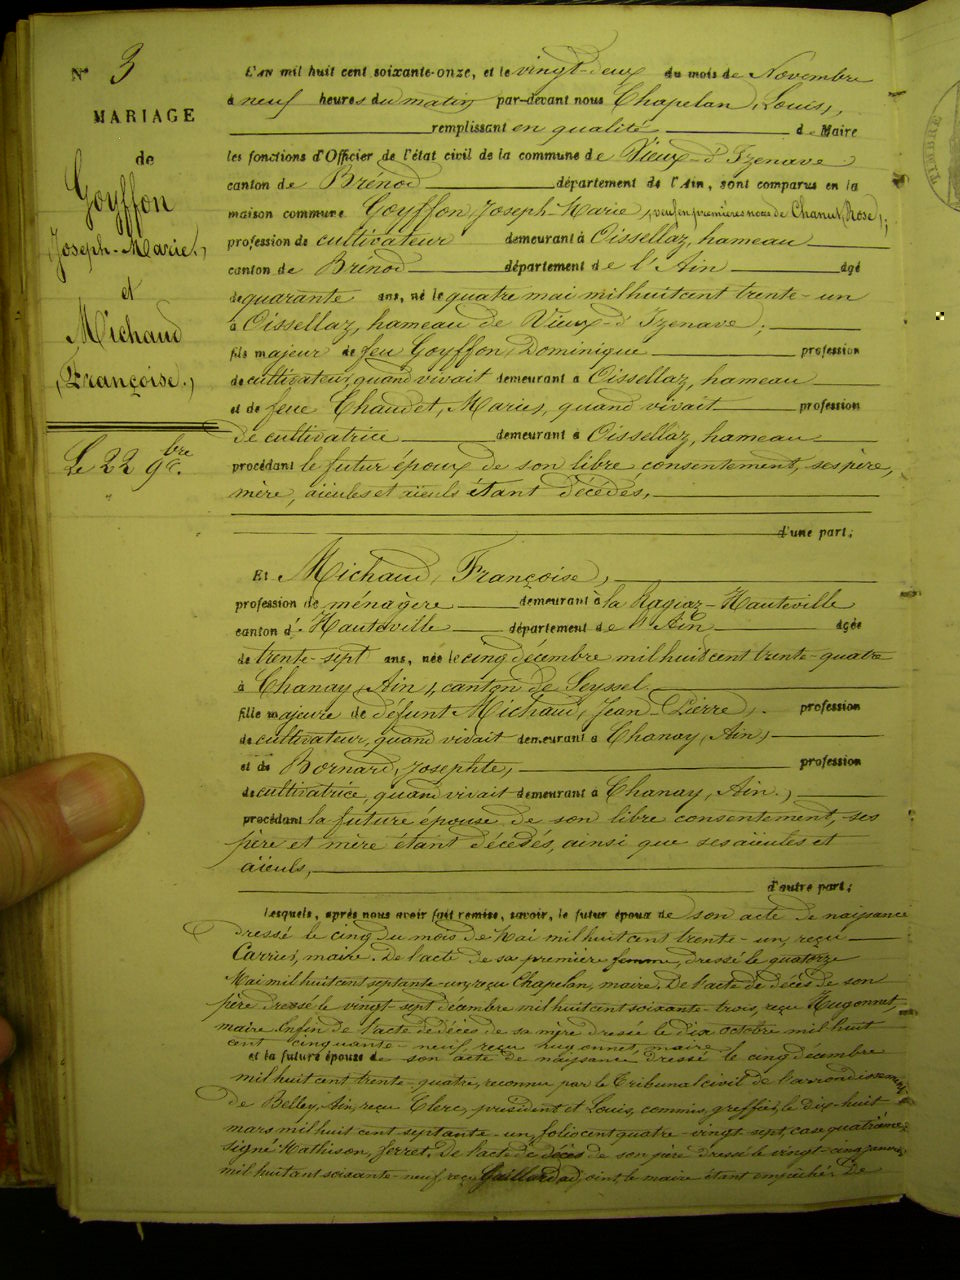 N° 3
MARIAGE
de
Goyffon
Joseph-Marie,
et
Michaud
(Françoise.)
Le 22 9bre.
L'AN mil huit cent soixante-onze, et le vingt-deux du mois de Novembre
à neuf heures du matin par-devant nous Chapelan, Louis,
remplissant en qualité de Maire
les fonctions d'Officier de l'état civil de la commune de Vieux-d'Izenave
canton de Brénod département de l'Ain, sont comparus en la
maison commune Goyffon, Joseph-Marie, veuf en premières noces de Chanel, Rose,
profession de cultivateur demeurant à Oissellaz, hameau
canton de Brénod département de l'Ain âgé
de quarante ans, né le quatre mai mil huit cent trente-un
à Oissellaz, hameau de Vieux-d'Izenave,
fils majeur de feu Goyffon, Dominique profession
de cultivateur, quand vivait demeurant à Oissellaz, hameau
et de feue Chaudet, Marie, quand vivait profession
de cultivatrice demeurant à Oissellaz, hameau
procédant le futur époux de son libre consentement, ses père,
mère, aïeules et aïeuls étant décédés,
d'une part;
Et Michaud, Françoise,
profession de ménagère demeurant à la Ragiaz-Hauteville
canton d' Hauteville département de l'Ain âgée
de trente-sept ans, née le cinq décembre mil huit cent trente-quatre
à Chanay, Ain, canton de Seyssel
fille majeure de défunt Michaud, Jean-Pierre, profession
de cultivateur, quand vivait demeurant à Chanay, Ain,
et de Bornard, Josephte, profession
de cultivatrice quand vivait demeurant à Chanay, Ain.,
procédant la future épouse de son libre consentement, ses
père et mère étant décédés, ainsi que ses aïeules et
aïeuls,
d'autre part;
Lesquels, après nous avoir fait remise, savoir, le futur époux de son acte de naissance
dressé le cinq du mois de Mai mil huit cent trente-un, reçu
Carrier, maire. De l'acte de sa première femme, dressé le quatorze
Mai mil huit cent septante-un, reçu Chapelan, maire. De l'acte de décès de son
père dressé le vingt-sept décembre mil huit cent soixante-trois, reçu Hugonnet,
maire. Enfin de l'acte de décès de sa mère dressé le dix octobre mil huit
cent cinquante-neuf, reçu hugonnet, maire
et la future épouse de son acte de naissance dressé le cinq décembre
mil huit cent trente-quatre, reconnu par le Tribunal civil de l'arrondissement
de Belley, Ain, reçu Clerc, président et Louis, commis greffier, le dix-huit
mars mil huit cent septante-un, folio cent quatre-vingt-sept, case quatrième,
signé Mathison, ferret. De l'acte de décès de son père dressé le vingt-cinq janvier
mil huit cent soixante-neuf, reçu Gaillard adjoint, le maire étant empêché. De
TIMBRE